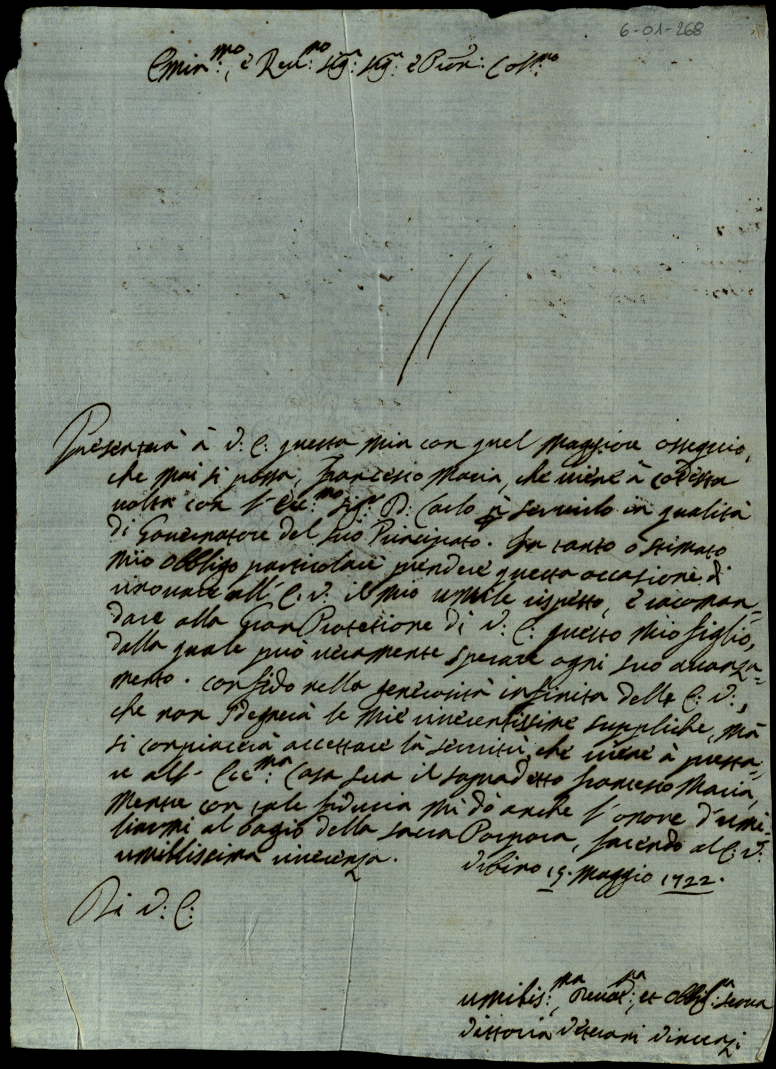 6-01-268
Emin:mo, è Reu:mo Sig:r Sig:r è Pron: Col:mo
Presenterà à V: E: questa mia con quel Maggiore ossequio,
che mai si possa, Francesco Maria, che uiene à codesta
uolta con l'Ecc:mo Sig:r D: Carlo à seruirlo in qualità
di Gouernatore del suo Principato. In tanto ò stimato
mio obbligo particolare prendere questa occasione di
rinouare all'E: V: il mio umile rispetto, è racoman-
dare alla Gran Protetione di V: E: questo mio figlio,
dalla quale può ueramente sperare ogni suo auanza-
mento. Confido nella generosità infinita della E: V:,
che non sdegnerà le mie riuerentissime suppliche, mà
si conpiacerà accettare la seruitù, che uiene à presta-
re all'Ecc:ma Casa sua il sopradetto Francesco Maria,
Mentre con tale fiducia mi dò anche l'onore d'umi-
liarmi al bagio della sacra Porpora, facendo al E: V:
umilissima riuerenza. Vrbino 15. Maggio 1722.
Di V: E:
umilis:ma, Deuot:ma, et Obblig:ma Serua
Vittoria Veterani Vincenzi